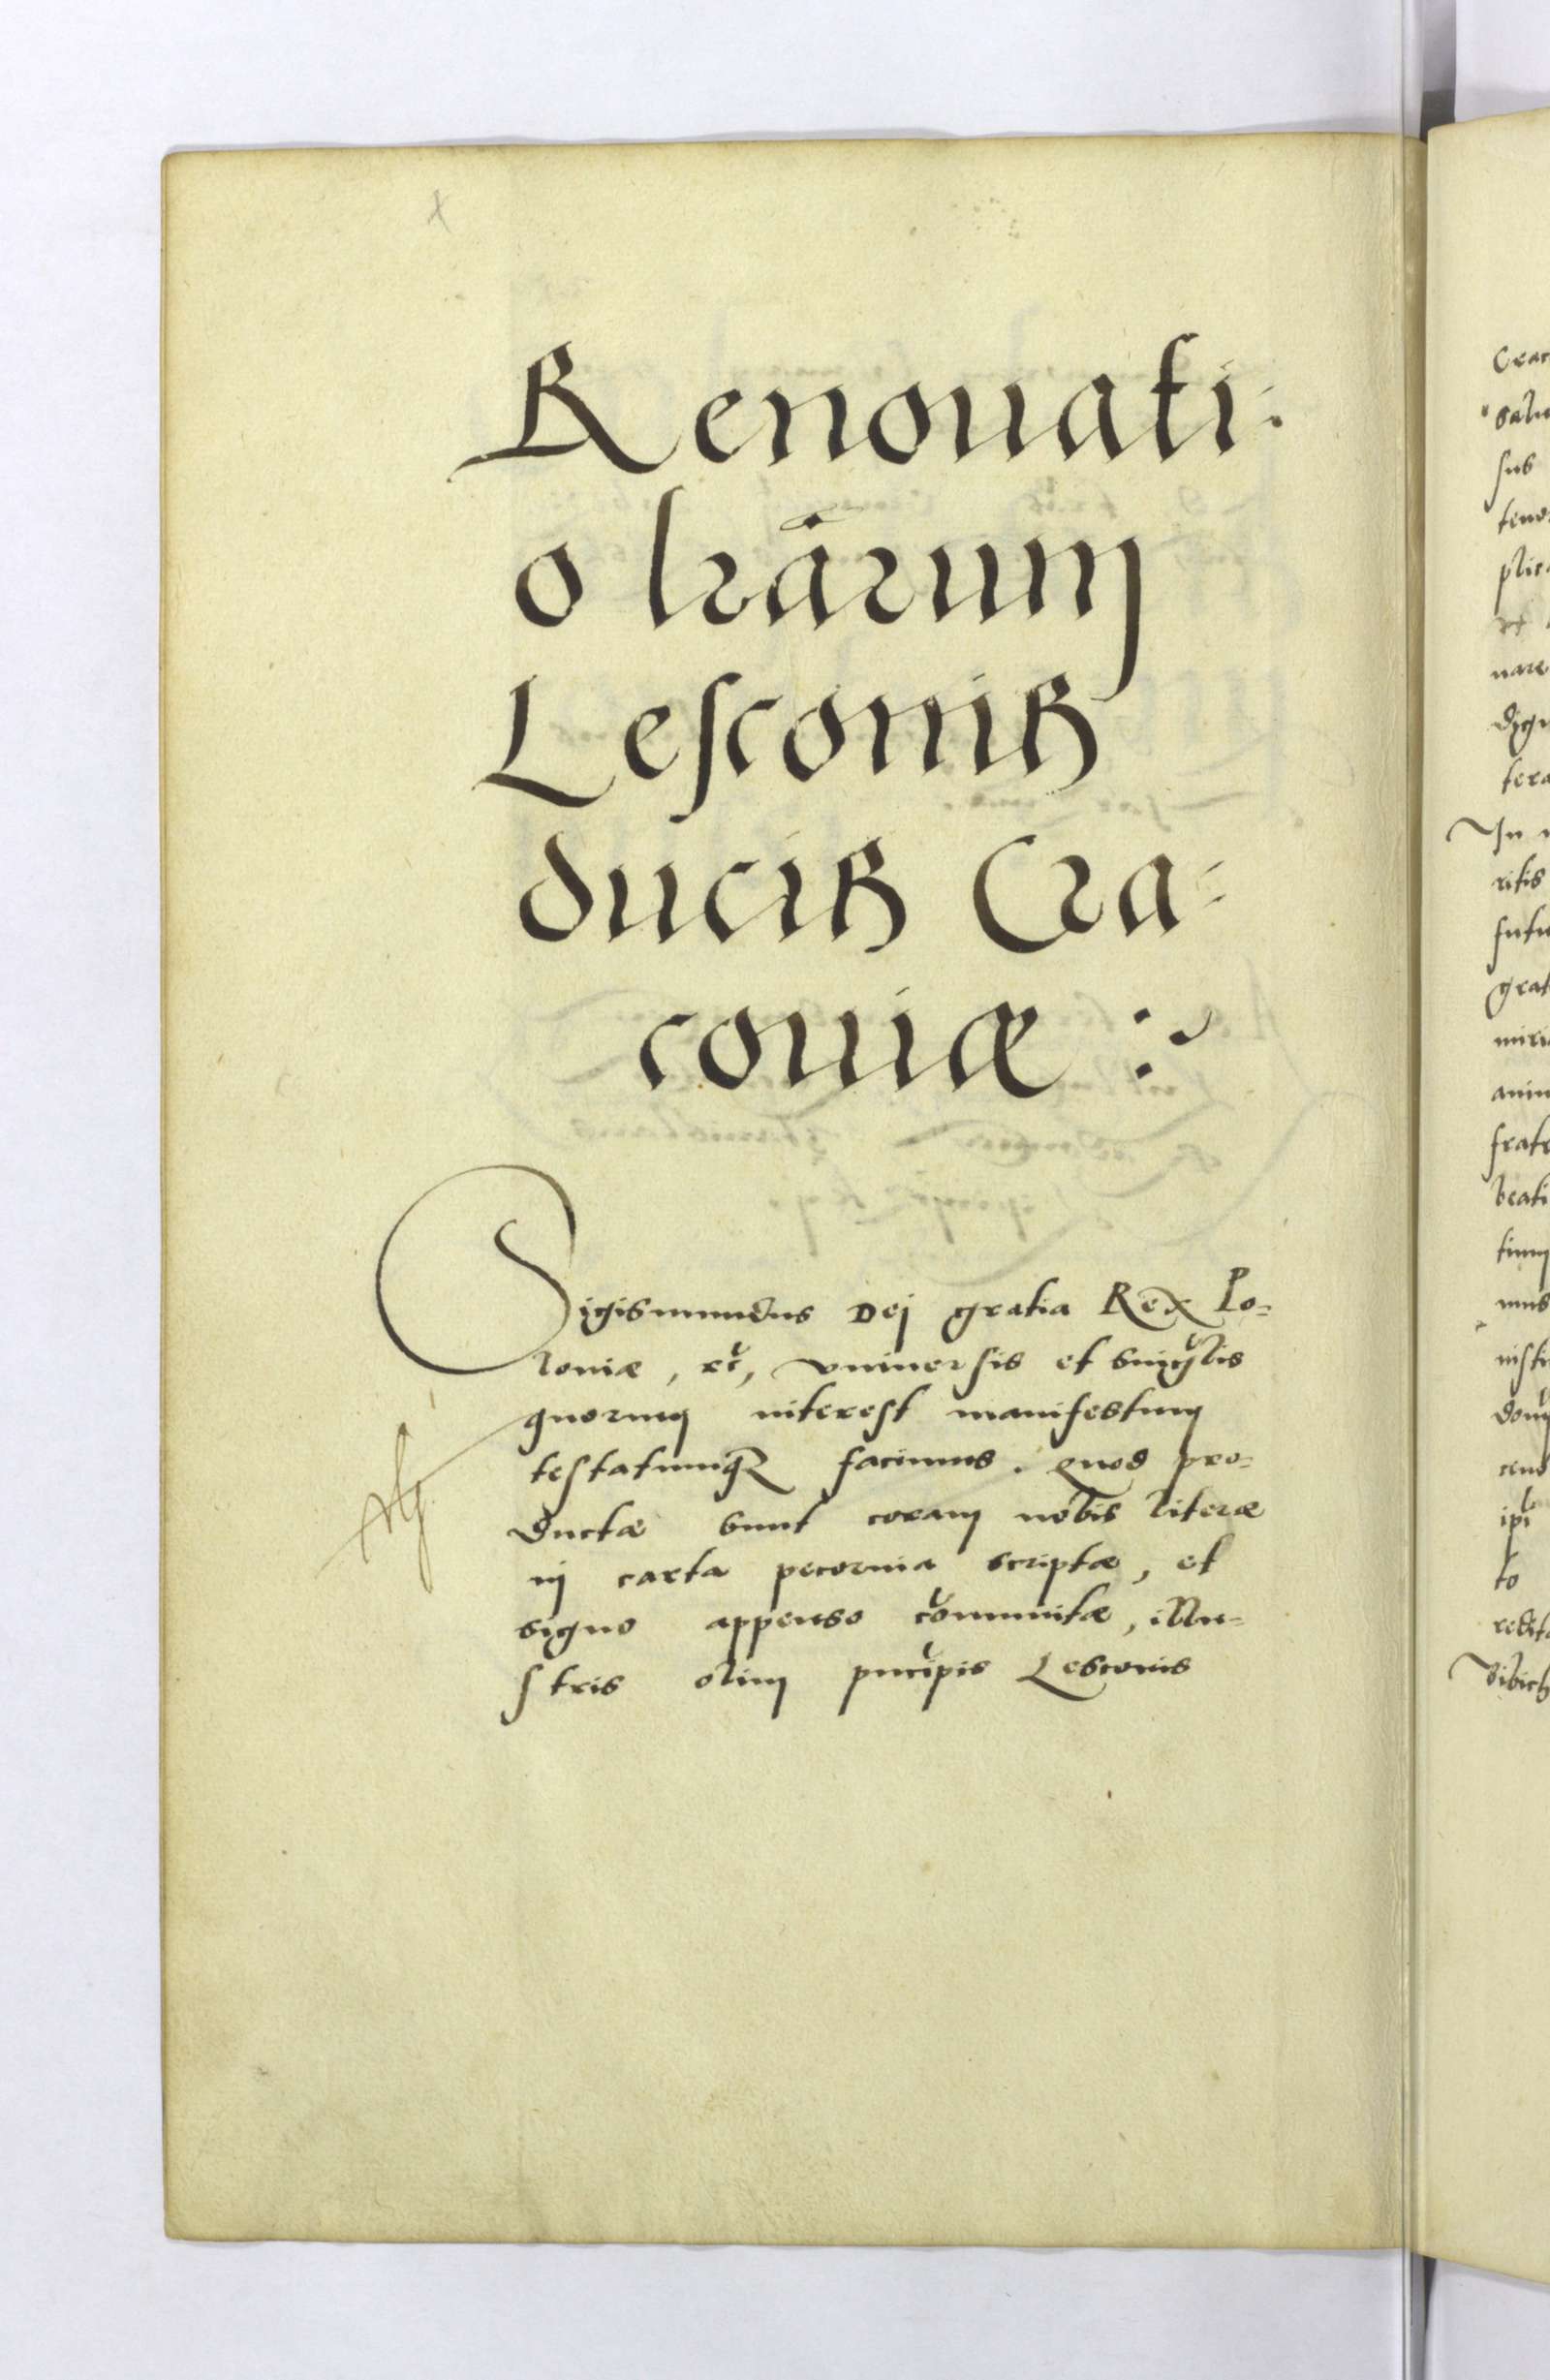 Renouati:
o lr̄arum
Lesconis
ducis Cra=
couiæ :~
Sigismundus Dej gratia Rex Po=
loniæ, etc̃, vniuersis et singl̃is
quorum interest manifestum
testatumq; facimus. Quod pro=
ductæ sunt coram nobis literæ
in carta pecorina scriptæ, et
signo appenso cõmunitæ, illu=
stris olim prĩcipis Lesconis
Crac
salu
sus
teno
plic
et
nare
dign
tera
In n
ritis
futu
grat
miri
anim
fratr
beati
tinm
mus
nisti
dom
cend
ipĩ
to
redita
Vibich